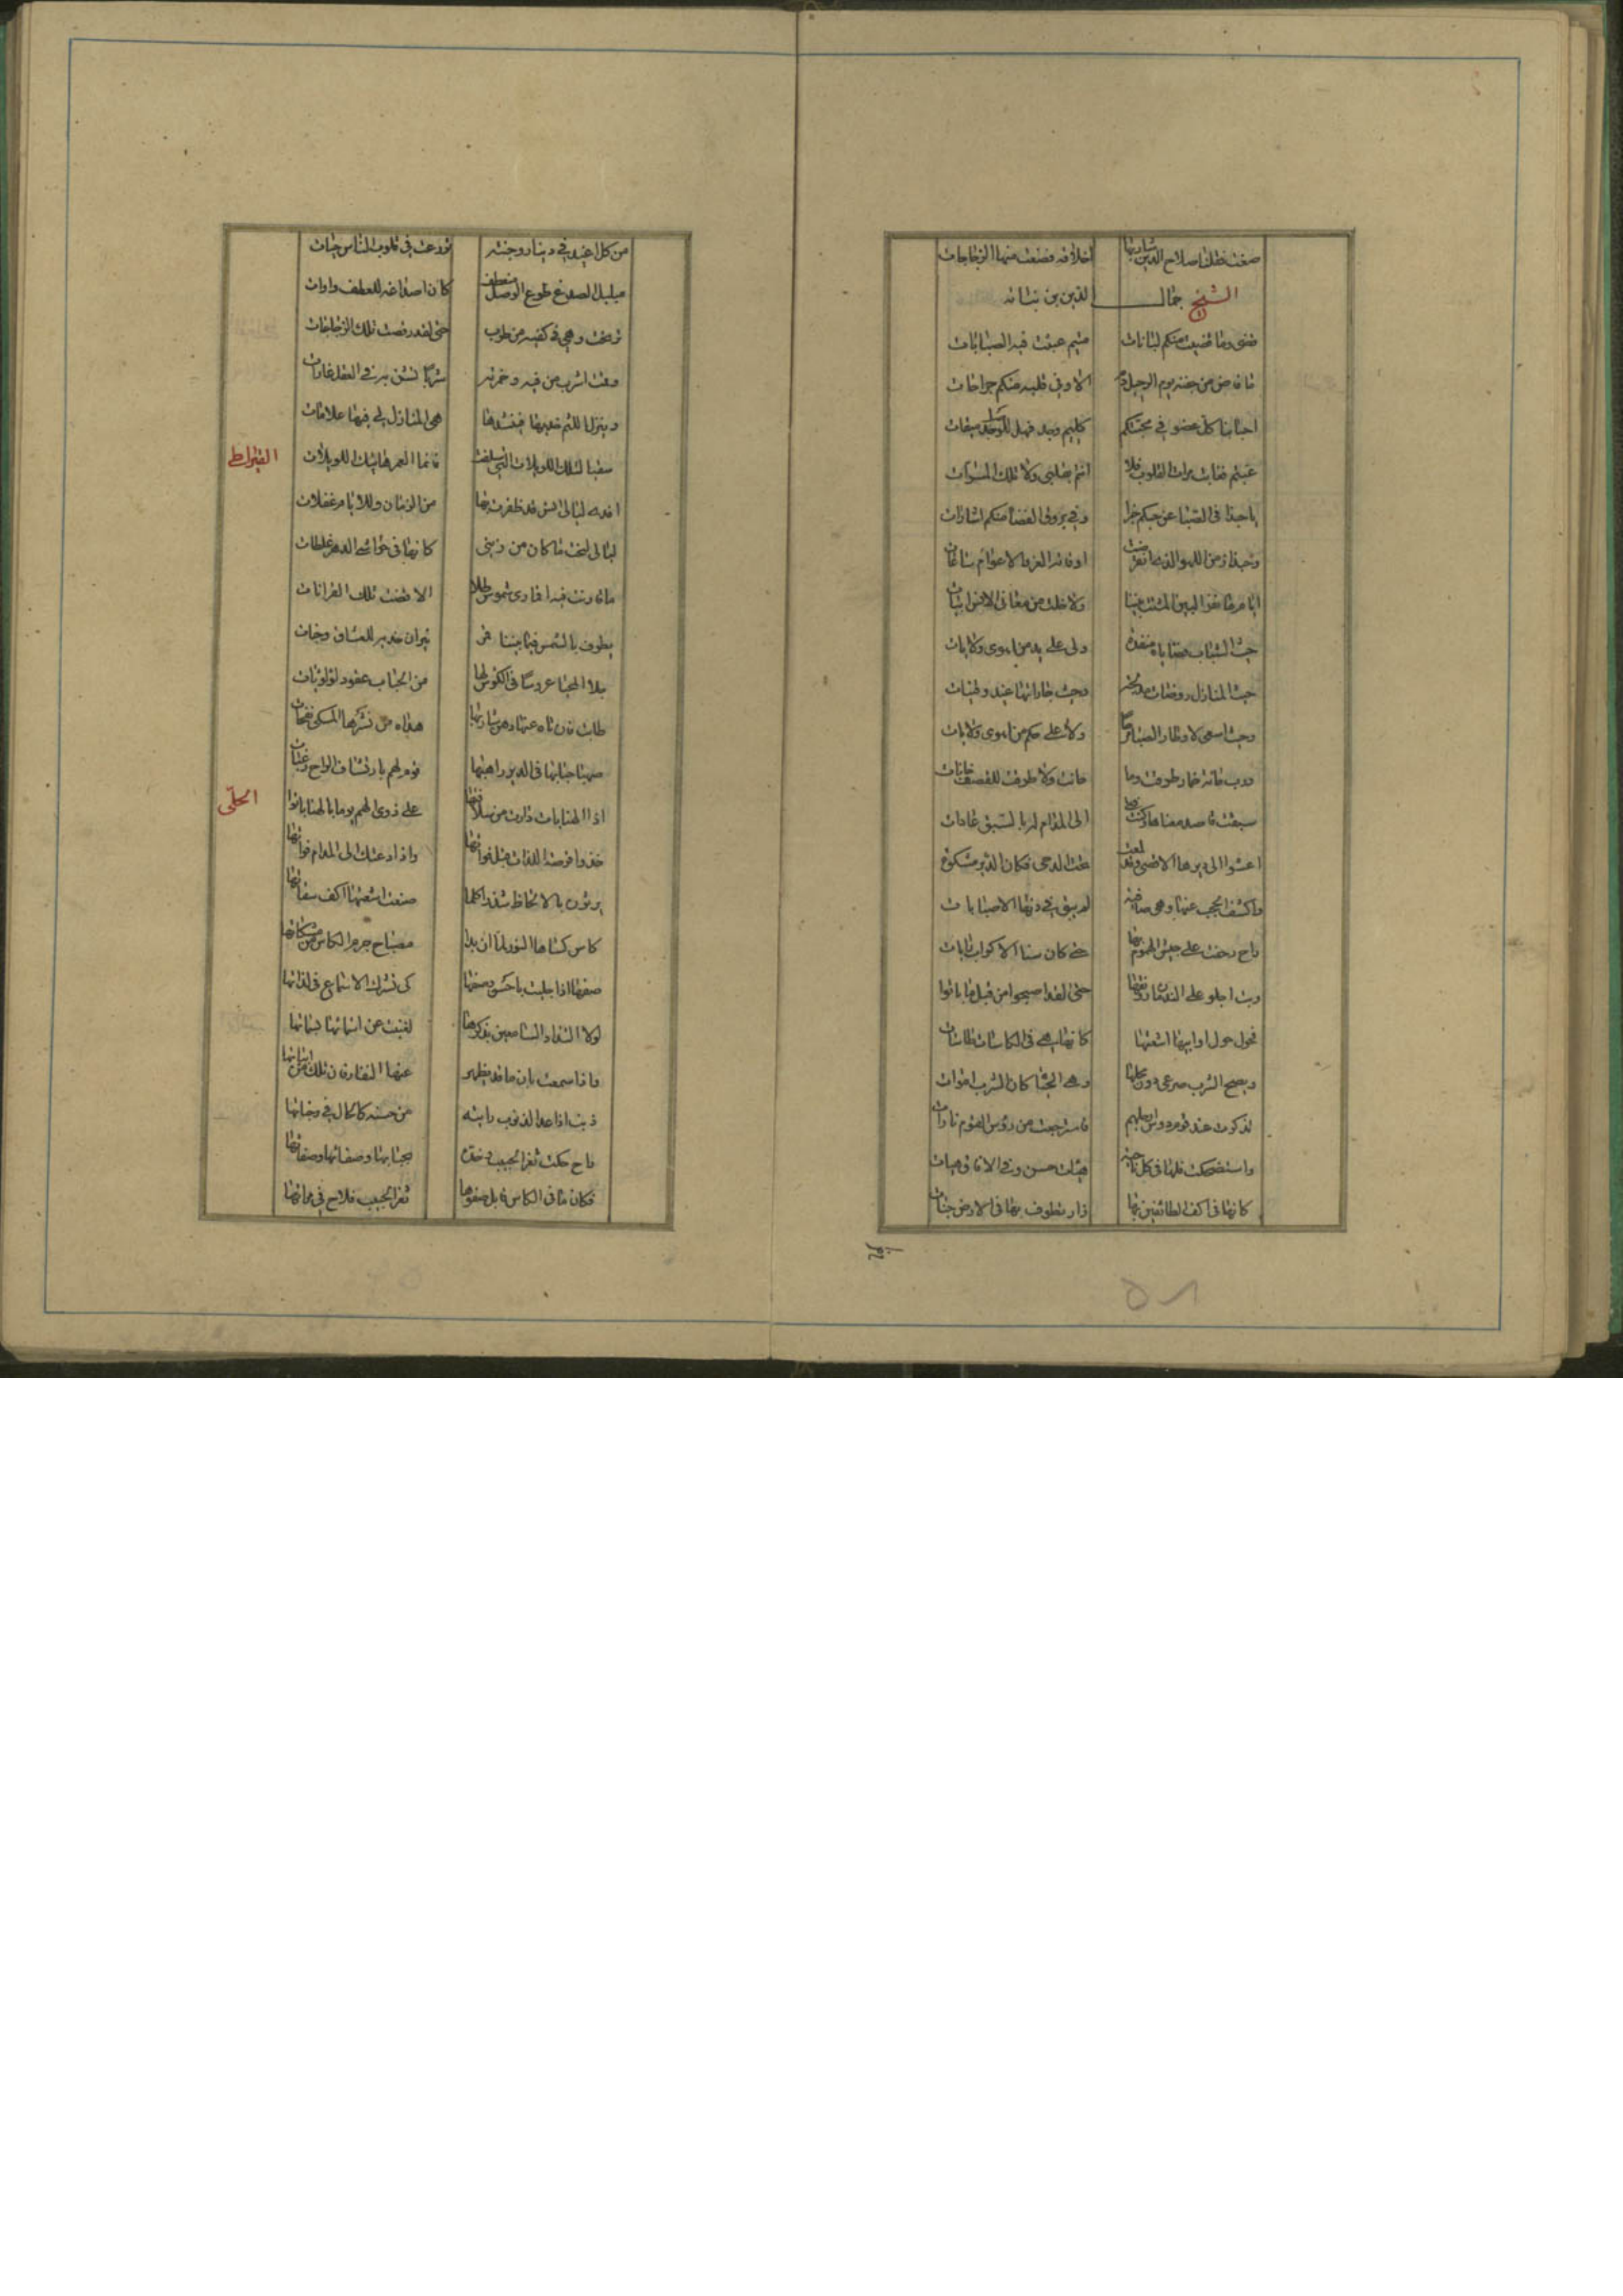 صفت فظلنا صلاح الدين شاربها اخلاقه فصنعت منها الزجاجات
الشيخ جمال الدين بن نباته
قضى وما قضيت منكم لبانات متيم عبثت فيه الصبابات
ما فاض من جفنه يوم الرحيل دم الا وفي قلبه منكم جراحات
احبابنا كل عضو في محبتكم كليم وجد فهل للوصل ميقات
غبتم فغابت مرات القلوب فلا انتم بقلبي ولا تلك المسرات
يا حبذا في الصبا عن حبكم خبر وفي بروق الغضا منكم اشارات
وحبذا زمن اللهو الذي انقرضت اوقاته الغر والاعوام ساعات
ايام ما شعر البين المشت بنا ولا خلت من مغاني الانس ابيات
حيث الشباب قضاياه منفذة ولي على يد من اهوى ولايات
حيث المنازل روضات مدبجة وحيث جاراتها غيد وقينات
وحيث اسعى لاوطار الصبا مرحا ولي على حكم من اهوى ولايات
ورب حانة خمار طرقت وما حانت ولا طرقت للقصف حانات
سبقت قاصد مغناها وكنت فتى الى المدام له بالسبق عادات
اعشوا الى ديرها الاقصى وقد لمعت تحت الدجى فكان الدير مشكوة
واكشف الحجب عنها وهي صافية لم يبق في دنها الا صبابات
راح زحفت على جيش الهموم بها حتى كان سنا الاكواب رايات
وبت اجلو على الندمان رونقها حتى لقد اصبحوا من قبل ما باتوا
تجول حول اوانيها اشعتها كانها هي في الكاسات كاسات
ويصبح الشرب صرعى دون مجلسها وهي الحيا كان الشرب اموات
تذكرت عند قوم دوس ارجلهم فاسترجعت من رؤس القوم ثارات
واستضحكت فلها في كل ناحية هبات حسن وفي الافاق هبات
كانها في اكف الطائفين بها نار تطوف بها في الارض جنات
من كل
من كل اغيد في دينار وجنته توزعت في قلوب الناس حبات
مبلبل الصدغ طوع الوصل منعطف كان اصداغه للعطف واوات
ترنحت وهي في كفيه من طرب حتى لقد رقصت تلك الزجاجات
وقمت اشرب من فيه وخمرته شربا تشن به في العقل غارات
وينزل اللثم خديها فينشدها هي المنازل لي فيها علامات
سقيا لتلك اللويلات التي سلفت فانما العمر هاتيك اللويلات
القيراطي
افدي ليالي انس قد ظفرت بها من الزمان وللايام غفلات
ليالي لحت ما كان من زمني كانها في حواشي الدهر غلطات
ما قارنت فيه اقماري شموس طلا الا قضت تلك القرانات
يطوف بالشمس فيما بيننا قمر نيران خديه للعشاق وجنات
جلا الحميا عروسا في الكؤس لها من الحباب عقود لؤلؤيات
طابت فان تاه عنها وهن شاربها هداه من نشرها المسكي نفحات
صهبا جابها في الدير راهبها قوم لهم بارتشاف الراح رغبات
اذا الهنا بات زارت من سلافتها على ذوي الهم يوما بالهنا باتوا
الحلي
خذ وا فرصة اللذات قبل فواتها واذا دعتك الى المدام فواتها
يرنون بالالحاظ شذرا كلما صبغت اشعتها اكف سقاتها
كاس كساها النور لما ان بدا مصباح جرم الكاس من مشكاتها
صفها اذا جليت باحسن وصفها كي نشرك الاسماع في لذاتها
لولا التذاذ السامعين بذكرها لغنيت عن اسمائها بسماتها
واذا سمعت بان ما قد يظهر عنها النقار فان تلك من اياتها
ذنب اذا عد الذنوب رايته من حسنه كالخال في وجناتها
راح حكت ثغر الحبيب وخده بحبابها وصفائها وصفاتها
فكان ما في الكاس قابل صفوها ثغر الحبيب فلاح في مراتها
٥١